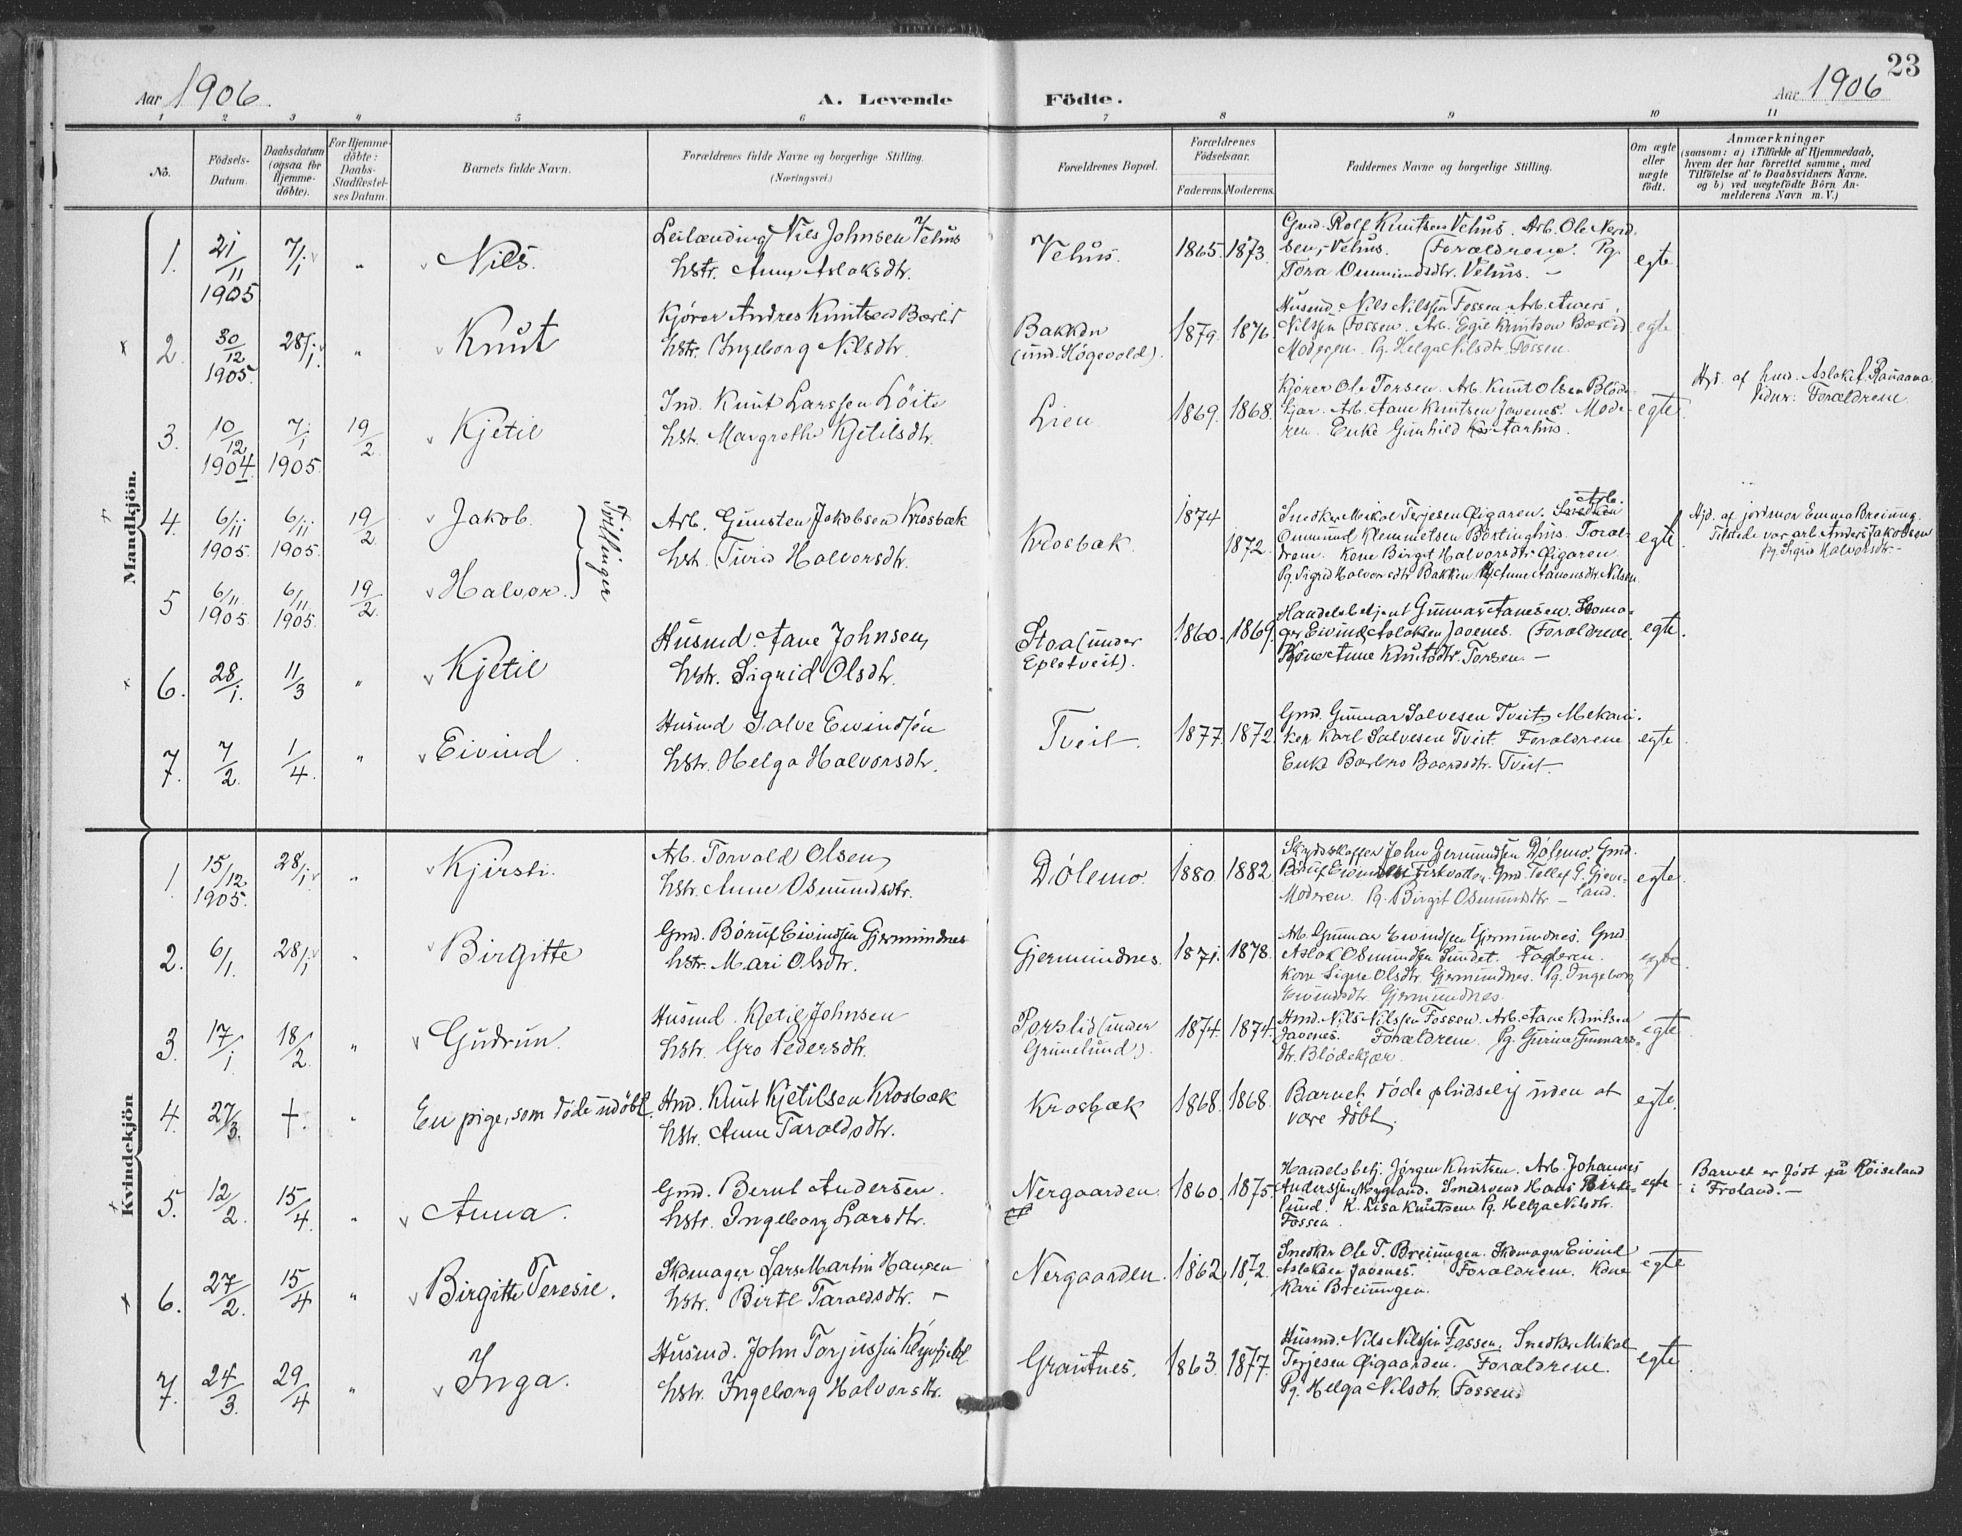 23
Aar 1906.
A. Levende Födte.
Aar 1906
1 2 3 4 5 6 7 8 9 10 11
No.
Födsels-Datum.
Daabsdatum (ogsaa for Hjemme-döbte).
For Hjemme-döbte: Daabs-Stadfæstel-ses Datum.
Barnets fulde Navn.
Forældrenes fulde Navne og borgerlige Stilling.
(Næringsvei.)
Forældrenes Bopæl.
Forældrenes Födselsaar.
Faderens. Moderens.
Faddernes Navne og borgerlige Stilling.
Om ægte eller uægte født.
Anmærkninger
(saasom: a) i Tilfælde af Hjemmedaab,
hvem der har forrettet samme, med
Tilföielse af to Daabsvidners Navne.
og b) ved uægtefödte Börn An-
melderens Navn m. V.)
Mandkjön.
1. 21/11 1905 7/1 " Nils.
Leilænding Nils Johnsen Vehus
hstr. Anne Aslaksdtr.
Vehus. 1865. 1873.
Gmd. Rolf Knutsen Vehus. Arb. Ole
sen, Vehus. Forældrene. Pg.
Tora Omundsdtr. Vehus. —
egte.
2. 30/12 1905. 28/1. " Knut
Kjører Andres Knutsen Bærlid
hstr. Ingeborg Nilsdtr.
Bakken
(und. Högevold).
1879. 1876.
Husmd. Nils Nilssen Fossen. Arb.
Nilssen Fossen. Arb. Knutson
Moderen. Pg. Helga Nilsdtr. Fossen.
egte
3. 10/12 1904 7/1 1905. 19/2 Kjetil
Ind. Knut Larssen Löite
hstr. Margrethe Kjetilsdtr.
Lien 1869. 1868.
Kjører Ole Torsen. Arb. Knut Olsen Blöde-
kjær. Arb. Aane Knutsen Javenes. Mode-
ren. Enke Gunhild Aarhus.
egte.
Hjd. af hmd. Aslak
Vidner: Forældrene
4. 6/11 1905. 6/11 1905. 19/2 Jakob.
5 6/11 1905. 6/11 1905. 19/2 Halvor.
Tvillinger
Arb. Gunsten Jakobsen Krosbæk
hst. Turid Halvorsdtr.
Krosbæk. 1874 1872.
Snedker Mikal Terjesen Øigaren. Arb.
Omund Klemmetsen Foræl-
drene. Kone Birgit Halvorsdtr. Øigaren
Pg. Sigrid Halvorsdtr Bakken Anne Aanonsdtr. Nilsen
egte.
Hjd. af jordmor Emma Breiung.
Tilstede var arb. Anders Jakobsen
Pg. Sigrid Halvorsdtr —
6. 28/1. 11/3 " Kjetil
Husmd. Aane Johnsen
hstr. Sigrid Olsdtr.
Stoa (under
Epletveit).
1860. 1869.
Handelsbetjent Gunnar Aanesen. Skoma-
ger Eivind Aslaksen Javenes. (Forældrene.
Kone Anne Knutsdtr. Torsen —
egte.
7. 7/2. 1/4. " Eivind
Husmd Salve Eivindsen
hstr. Helga Halvorsdtr.
Tveit. 1877. 1872
Gmd. Gunnar Salvesen Tveit. Mekani-
ker Karl Salvesen Tveit. Forældrene
Enke Barbro Baardsdtr. Tveit.
egte
Kvindekjön
1. 15/12 1905. 28/1. " Kjirsti.
Arb. Torvald Olsen
hstr. Anne Osmundsdtr.
Dölemo. 1880. 1882.
Skydsskaffer John Gjermundsen Dölemo. Gmd.
Böruf Gmd. Tellef G. Gjeve-
land.
Moderen. Pg. Birgit Osmundsdtr —
egte.
2. 6/1. 28/1 " Birgitte
Gmd. Böruf Eivindsen Gjermundnes
hstr. Mari Olsdtr.
Gjermundnes. 1871. 1878.
Arb. Gunnar Eivindsen Gjermundnes. Gmd.
Aslak Osmundsen Sundet. Faderen.
Kone Signe Olsdtr. Gjermundnes. Pg. Ingeborg
Eivindsdtr. Gjermundnes.
egte.
3. 17/1. 18/2 " Gudrun.
Husmd. Kjetil Johnsen
hstr. Gro Pedersdtr.
Porslid (under
Grunelund).
1874. 1874.
Hmd. Nils Nilssen Fossen. Arb. Aane Knutsen
Javenes. Forældrene. Pg. Gurine Gunnars-
dtr. Blödekjær.
egte
4. 27/3. +. " En pige, som döde udöbt.
Hmd. Knut Kjetilsen Krosbæk
hstr. Anne Taraldsdtr.
Krosbæk 1868. 1868.
Barnet döde pludselig uden at
være döbt.
egte.
5. 12/2. 15/4. " Anna.
Gmd. Bernt Andersen.
hstr. Ingeborg Larsdtr.
Nergaarden. 1860. 1875.
Handelsbetj. Jørgen Knutsen. Arb. Johannes
Anderssen Smedsvend Hans Birke-
lund. K. Lisa Knutsen Pg. Helga Nilsdtr.
Fossen.
egte
Barnet er födt på Röiseland
i Froland. —
6. 27/2. 15/4 " Birgitte Teresie.
Skomager Lars Martin Hansen
hstr. Birte Taraldsdtr. —
Nergaarden. 1862. 1872.
Snedker Ole T. Breiungen. Skomager Eivind
Aslaksen Javenes. Forældrene. Kone
Kari Breiungen.
egte
7. 24/3. 29/4 " Inga.
Husmd. John Torjussen
hstr. Ingeborg Halvorsdtr.
Grautnes. 1863. 1877.
Husmd. Nils Nilssen Fossen. Snedker Mikal
Terjesen Øigaarden. Forældrene.
Pg. Helga Nilsdtr. Fossen.
egte